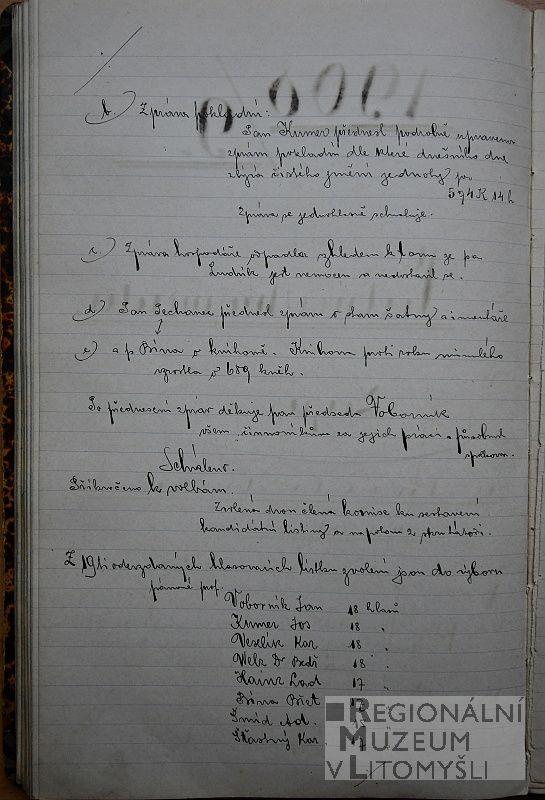 b.) Zpráva pokladní:
Pan Kumer přednesl podrobně upravenou
zprávu pokladní dle které dnešního dne
zbývá čistého jmění jednoty per
594 K 14 h
Zpráva se jednohlasně schvaluje.
c.) Zpráva hospodáře odpadla vzhledem k tomu že pan
Ludvík jest nemocen a nedostavil se.
d.) Pan přednesl zprávu o stavu šatny a inventáře
e.) a p. Bína o knihovně. Knihovna proti roku minulého
vzrostla o 689 kněh.
Po přednesení zpráv děkuje pan předseda Voborník
všem činovníkům za jejich práci a působnost
spolkovou.
Schváleno.
Přikročeno k volbám.
Zvolená dvou členná komise ku sestavení
kandidátní listiny a na potom 2 skrutátoři.
Z 19ti odevzdaných hlasovacích lístků zvoleni jsou do výboru
pánové prof.
Voborník Jan 18 hlasů
Kumer Jos 18 "
Veselík Kar 18 "
Welz Dr Bedř 18 "
Hainz Lad 17 "
Bína Břet 17 "
Šmíd Ad. 17
Šťastný Kar. 17
REGIONÁLNÍ
MUZEUM
V LITOMYŠLI